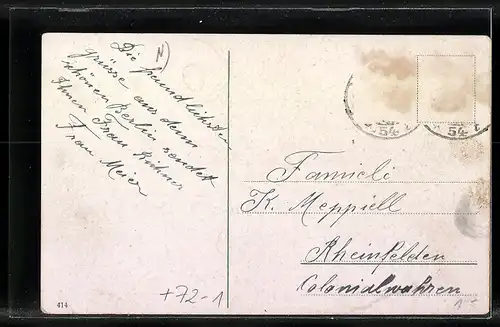 Die freundlichsten
Grüsse aus dem
schönen Berlin sendet
Ihnen Frau Bühner
Frau Meier
N
54
54
Famieli
K. Meppiell
Rheinfelden
Colonialwahren
414
+72-1
1-